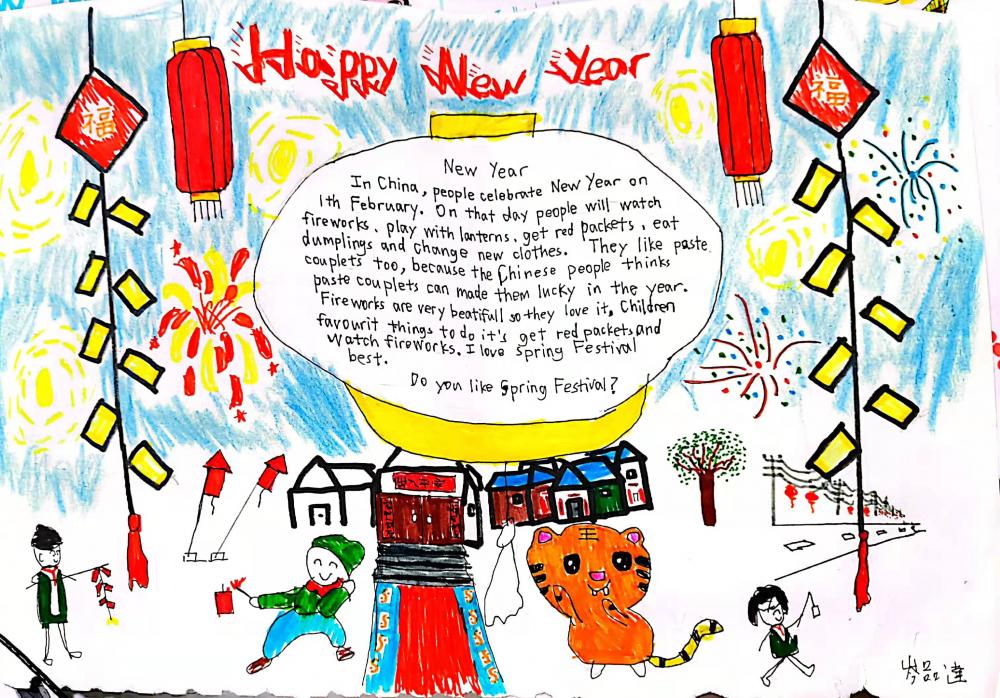 Happy New Year
福
福
New Year
In China, people celebrate New Year on
1th February. On that day people will watch
fireworks, play with lanterns, get red packets, eat
dumplings and change new clothes. They like paste
couplets too, because the Chinese people thinks
paste couplets can made them lucky in the year.
Fireworks are very beatifull so they love it, Children
favourit things to do it's get red packets and
watch fireworks. I love Spring Festival
best.
Do you like Spring Festival?